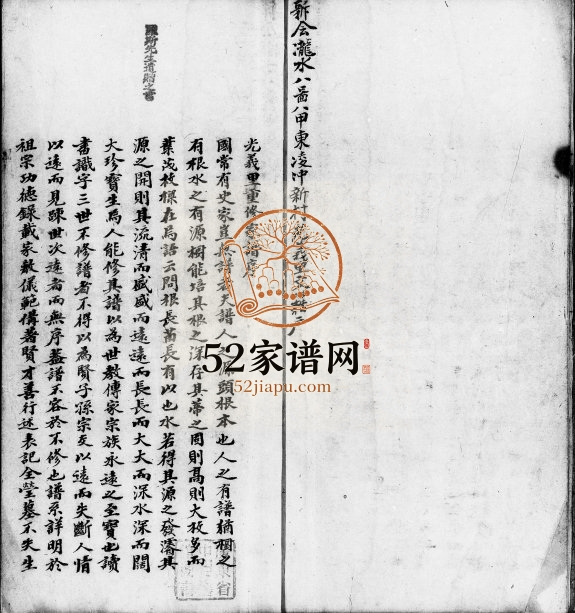 新会瀧水八啚八甲東凌冲新村
光義里重修家譜序
國常有史家豈無譜夫譜人之源頭根本也人之有譜猶樹之
有根水之有源樹能培其根之深存其蒂之固則高則大枝多而
葉茂枝樣在焉語云問根長苗長有以也水若得其源之發濬其
源之開則其流清而盛盛而遠遠而長長而大大而深水深而闊
大珍寶生焉人能修其譜以為世教傳家宗族永遠之至寶也讀
書識字三世不修譜者不得以為賢子孫宗支以遠而失斷人情
以遠而見踈世次遠者而無序蓋譜不容於不修也譜系詳明於
祖宗功德錄載家教儀範備著賢才善行述表記全塋墓不失生
先生遺贈之書
52家谱网
52jiapu.com
省